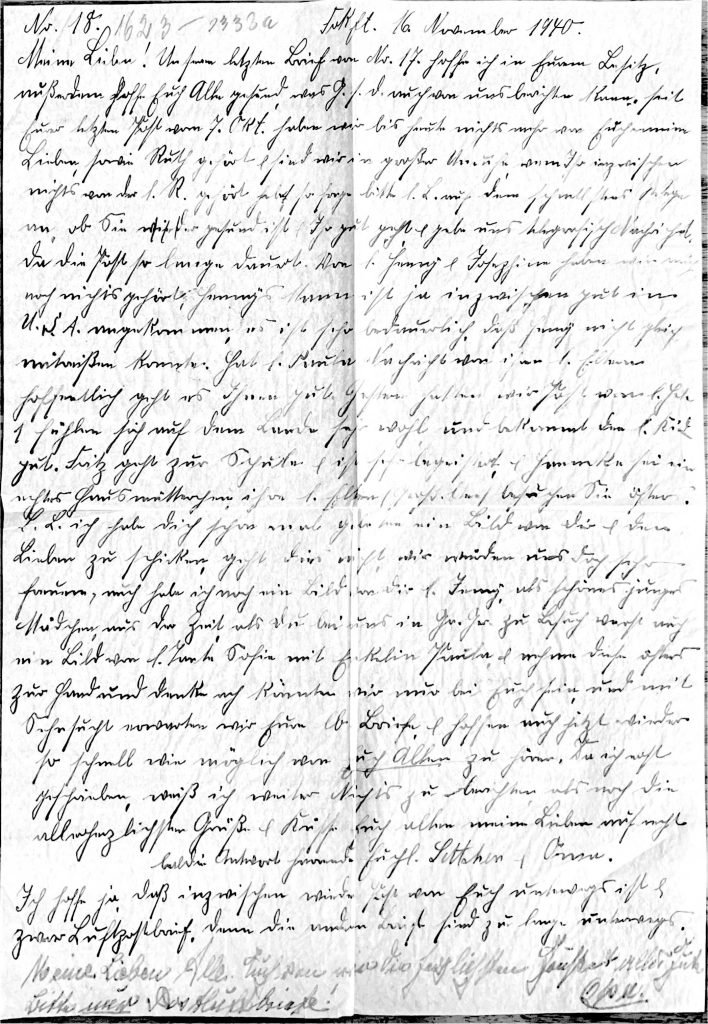 No. 18. 1623 – 2333a Frkft. 16. November 1940.
Meine Lieben! Unseren letzten Brief von No. 17. hoffe ich in Euern Besitz,
außerdem hoffe Euch Alle gesund, was G. s. d. auch von uns berichten kann. Seit
Euer letzten Post vom 7. Okt. haben wir bis heute nichts mehr von Euch meine
Lieben, sowie Ruth gehört & sind wir in großer Unruhe, wenn Ihr inzwischen
nichts von der l. R. gehört habt so frage bitte l. L. auf dem schnellstens Wege
an, ob Sie wieder gesund ist & Ihr gut geht & gebe uns telegrafisch Nachricht,
da die Post so lange dauert. Von l. Henny & Josefine haben wir auch
noch nichts gehört, Hennys Mann ist ja inzwischen gut in
U. S. A. angekommen, es ist sehr bedauerlich, daß Henny nicht gleich
mitreißen konnte. Hat l. Paula Nachricht von ihren l. Eltern
hoffentlich geht es Ihnen gut. Gestern hatten wir Post von l.
& fühlen sich auf dem Lande sehr wohl und bekommt den l. Kind
gut. Fritz geht zur Schule & ist sehr begeistert & Hannecke sei ein
echtes Hausmütterchen, ihre l. Eltern besuchen Sie öfters.
L. L. ich habe Dich schon mal gebeten ein Bild von Dir & den
Lieben zu schicken, geht dies nicht, wir würden uns doch sehr
freuen, auch habe ich noch ein Bild von Dir l. Jenny, als schönes junges
Mädchen, aus der Zeit als Du bei uns in Gr. Ger. zu Besuch warst auch
ein Bild von l. Tante Sofie mit Enkelin Paula & nehme diese öfters
zur Hand und denke ach könnten wir nur bei Euch sein, und mit
Sehnsucht erwarten wir Eure lb. Briefe, & hoffen auch jetzt wieder
so schnell wie möglich von Euch Allen zu hören. Da ich erst
geschrieben, weiß ich weiter Nichts zu berichten als noch die
allerherzlichsten Grüße & Küsse Euch allen meine Lieben auf recht
baldie Antwort harrend Euchl. Settchen & Oma.
Ich hoffe ja, daß inzwischen wieder Post von Euch unterwegs ist &
zwar Luftpostbrief, denn die andern Briefe sind zu lange unterwegs.
Meine Lieben Alle. Euch die herzlichsten Grüße & Alles Gute
Bitte nur Luftpostbriefe!